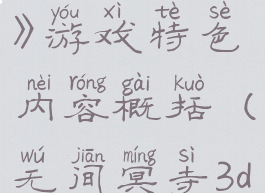 yóu xì tè sè
》游戏特色
nèi róng gài kuò
内容概括（
wú jiān míng sì
无间冥寺3d